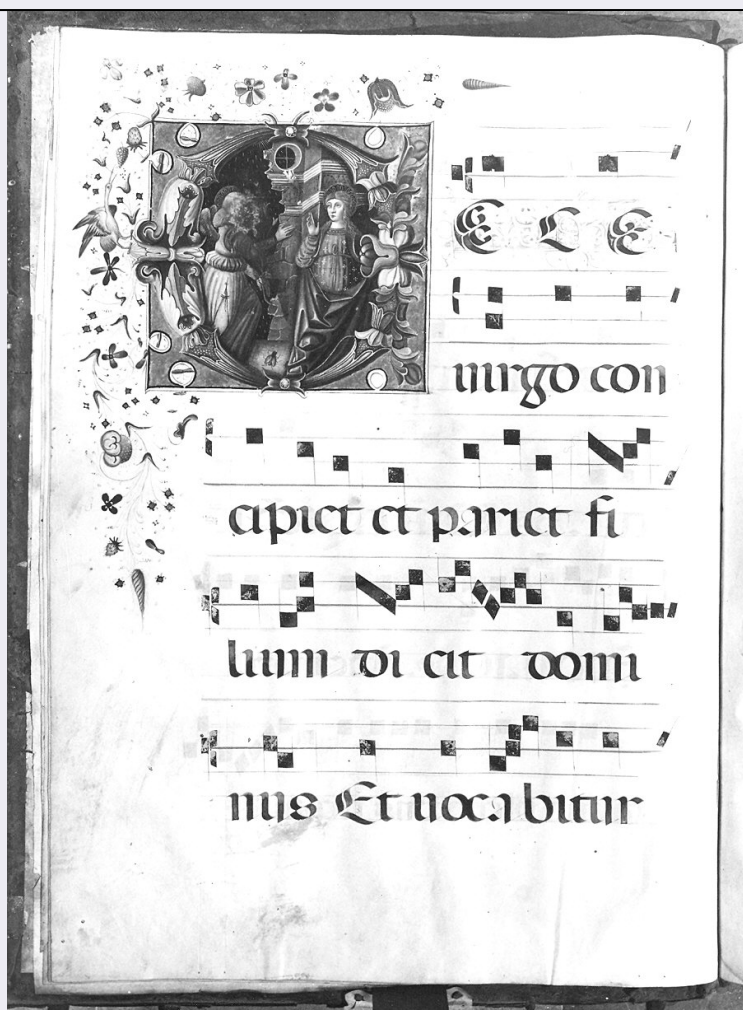 ECCE
uirgo con
cipiet et pariet fi
lium di cit domi
nus Et uoca bitur